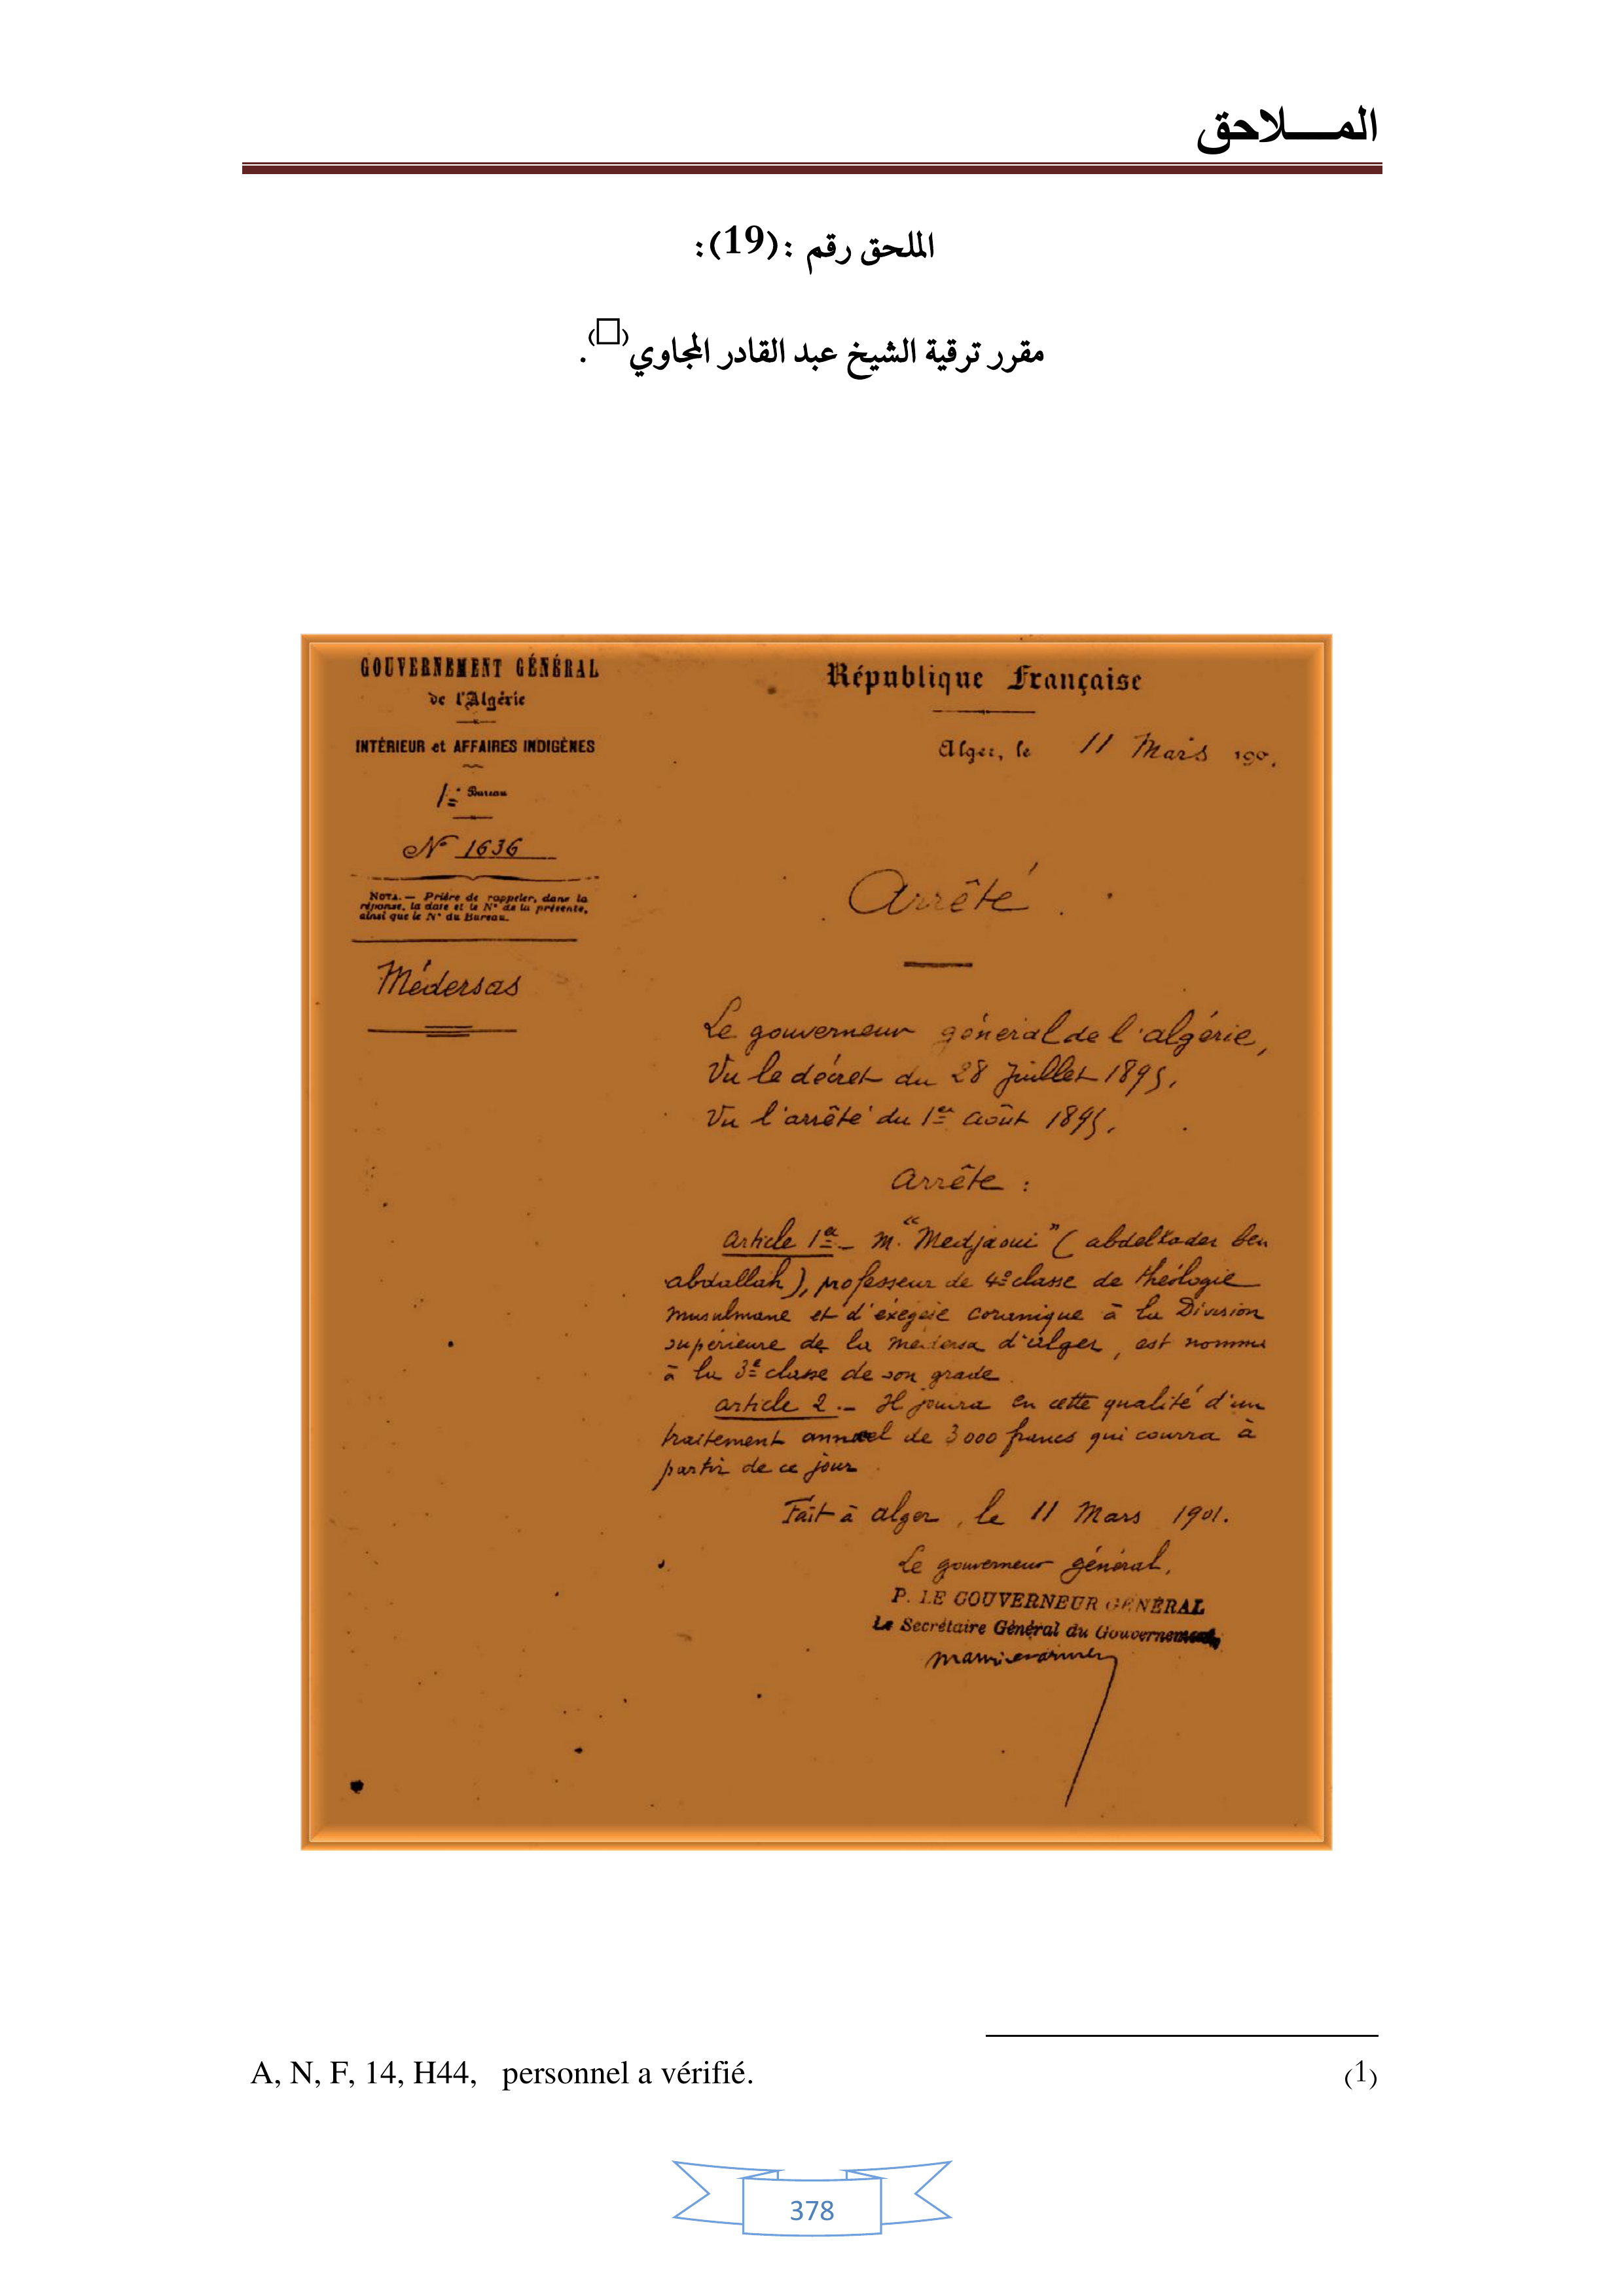 المـــــلاحق
الملحق رقم :(19):
مقرر ترقية الشيخ عبد القادر المجاوي(□).
GOUVERNEMENT GÉNÉRAL
de l'Algérie
INTÉRIEUR et AFFAIRES INDIGÈNES
1er Bureau
No 1636
NOTA. — Prière de rappeler, dans la
réponse, la date et le N° de la présente,
ainsi que le N° du Bureau.
Médersas
République Française
Alger, le 11 Mars 190
Arrêté.
Le gouverneur général de l'algérie,
Vu le décret du 28 Juillet 1895,
Vu l'arrêté du 1er août 1895,
Arrête :
Article 1er — M. "Medjaoui" (abdelkader ben
abdallah), professeur de 4e classe de théologie
musulmane et d'exégèse coranique à la Division
supérieure de la médersa d'alger, est nommé
à la 3e classe de son grade.
article 2 — Il jouira en cette qualité d'un
traitement annuel de 3000 francs qui courra à
partir de ce jour.
Fait à alger, le 11 Mars 1901.
Le gouverneur général,
P. LE GOUVERNEUR GÉNÉRAL
Le Secrétaire Général du Gouvernement
A, N, F, 14, H44, personnel a vérifié. (1)
378